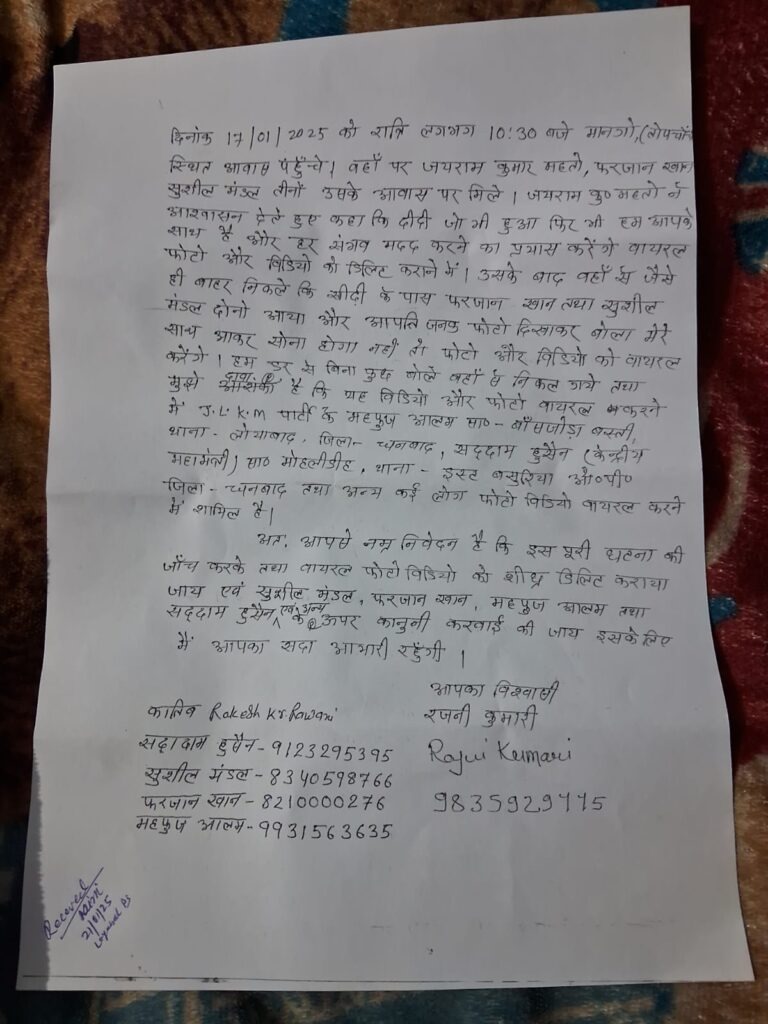 दिनांक 17/01/2025 को रात्रि लगभग 10:30 बजे मानगो, (तोपचाँची
स्थित आवास पहुँचे। वहाँ पर जयराम कुमार महतो, फरजान खान
सुशील मंडल तीनों उसके आवास पर मिले। जयराम कु० महतो ने
आश्वासन देते हुए कहा कि दीदी जो भी हुआ फिर भी हम आपके
साथ है और हर संभव मदद करने का प्रयास करेंगे वायरल
फोटो और विडियो को डिलिट कराने में। उसके बाद वहाँ से जैसे
ही बाहर निकले कि सीढी के पास फरजान खान तथा सुशील
मंडल दोनो आया और आपति जनक फोटो दिखाकर बोला मेरे
साथ आकर सोना होगा नहीं तो फोटो और विडियो को वायरल
करेंगे। हम डर से बिना कुछ बोले वहाँ से निकल गये तथा
मुझे है कि यह विडियो और फोटो वायरल करने
में J.L.K.M पार्टी के महफुज आलम सा०- बाँसजोड़ा बस्ती,
थाना- लोयाबाद, जिला- धनबाद, सद्दाम हुसैन (केन्द्रीय
महामंत्री) सा० मोहलीडीह, थाना- इस्ट बसुरिया ओ०पी०
जिला- धनबाद तथा अन्य कई लोग फोटो विडियो वायरल करने
में शामिल है।
अत. आपसे नम्र निवेदन है कि इस पूरी घटना की
जाँच करके तथा वायरल फोटो विडियो को शीघ्र डिलिट कराया
जाय एवं सुशील मंडल, फरजान खान, महफुज आलम तथा
सद्दाम हुसैन एवं अन्य के ऊपर कानुनी करवाई की जाय इसके लिए
मैं आपका सदा आभारी रहुँगी।
आपका विश्वासी
कातिब Rakesh Kr Rawani
रजनी कुमारी
सद्दाम हुसैन - 9123295395
Rajni Kumari
सुशील मंडल - 8340598766
फरजान खान - 8210000276
महफुज आलम - 9931563635
Received
21/01/25